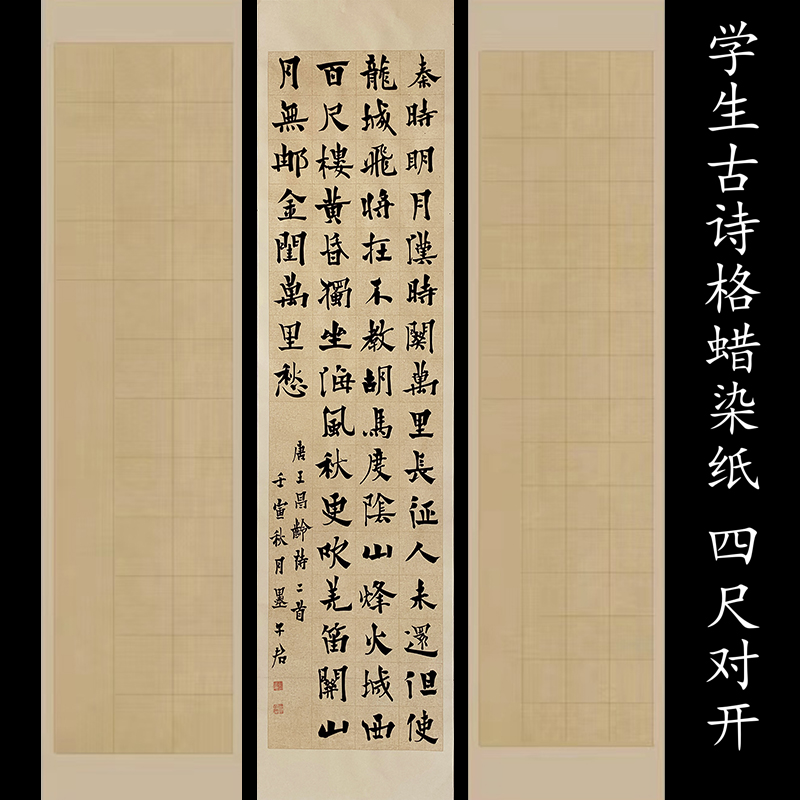 学生古诗格蜡染纸 四尺对开
秦時明月漢時關萬里長征人未還但使
龍城飛將在不教胡馬度陰山烽火城西
百尺樓黃昏獨坐海風秋更吹羌笛關山
月無那金閨萬里愁
唐王昌齡詩二首
壬寅秋月墨